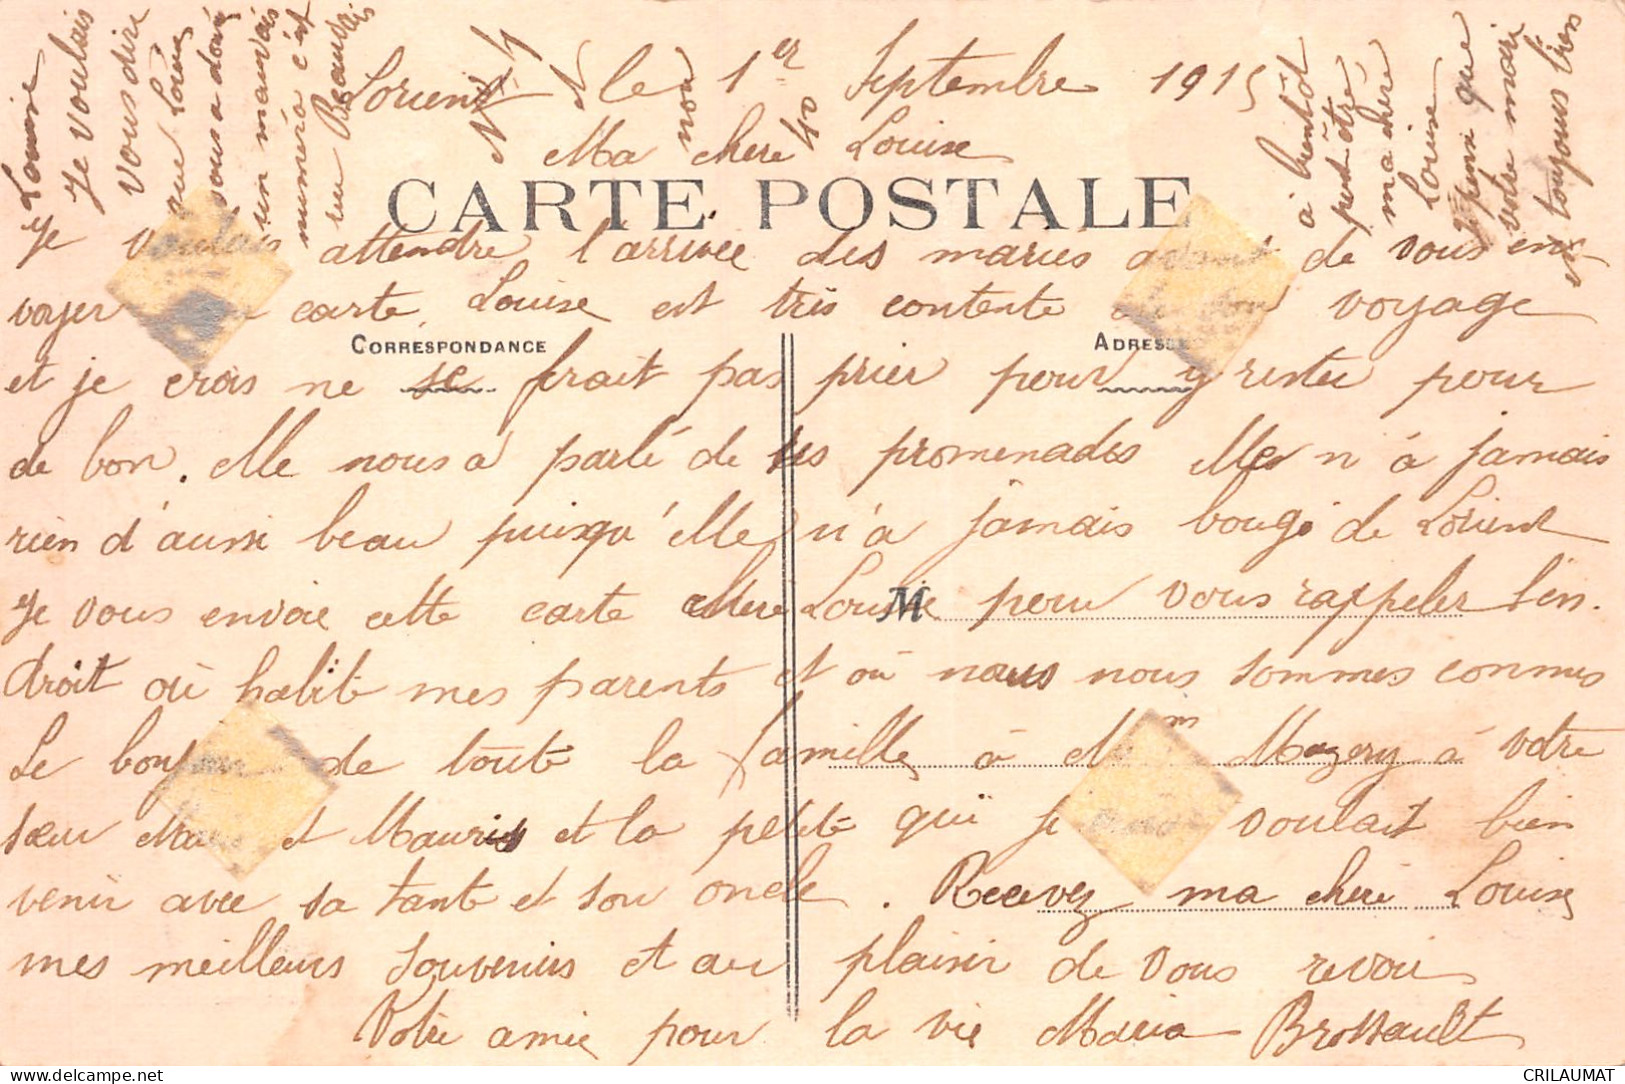 Lorient le 1er Septembre 1915
Ma chere Louise
CARTE POSTALE
Je voulais attendre l'arrivée des maries avant de vous en
voyer carte, Louise est très contente de bon voyage
CORRESPONDANCE
ADRESSE
et je crois ne se ferait pas prier pour y rester pour
de bon. elle nous a parlé de ses promenades elle n'a jamais
rien d'aussi beau puisqu'elle n'a jamais bougé de Lorient
M
Je vous envoie cette carte chère Louise pour vous rappeler l'en-
droit où habite mes parents et où nous nous sommes connus
Le bonjour de toute la famille à Mazery à votre
sœur et Mauris et la petite qui si voulait bien
venir avec sa tante et son oncle. Recevez ma chère Louise
mes meilleurs souvenirs et au plaisir de vous revoir
Votre amie pour la vie Maria Brossault
Louise
Je voulais
vous dire
que Louise
vous a donné
un mauvais
numéro c'est
ru Beauvais
N 4
non
40
à bientôt
peut être
ma chère
Louise
que
votre mari
toujours
CRILAUMAT